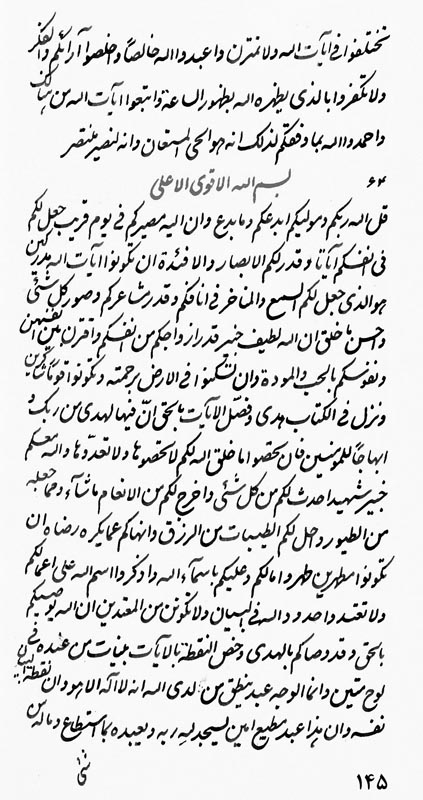 تختلفوا فی آیات الله ولا تمترن واعبدوا الله خالصاً واخلصوا آرائکم والفکر
ولا تکفروا بالذی یظهره الله بظهور الساعة واتبعوا آیات الله من هنالک
واحمدوا الله بما وفقکم لذلک انه هو الحی المستعان وانه لنصیر منتصر
۶۴
بسم الله الاقوی الاعلی
قل الله ربکم ومولیکم ابدعکم وما بدع وان الیه مصیرکم فی یوم قریب جعل لکم
فی انفسکم آیاتا وقدر لکم الابصار والافئدة ان تکونوا آیات الله مدرکین
هو الذی جعل لکم السمع والمناخر فی انافکم وقدر مشاعرکم وصور کل شئی
واحسن ما خلق ان الله لطیف خبیر قدر ازواجکم من انفسکم واقترن بین انفسهن
ونفوسکم بالحب والمودة وان تسکنوا فی الارض برحمته وتکونوا قوماً شاکرین
ونزل فی الکتاب هدی وفصل الآیات بالحق ان فیها لهدی من ربک و
ابهاجاً للمؤمنین فان تحصوا ما خلق الله لکم لا تحصوها ولا تعدوها والله معکم
خبیر شهید احدث لکم من کل شئی واخرج لکم من الانعام ما شآء ومما جعله
من الطیور وحل لکم الطیبات من الرزق وانهاکم عما یکره رضاه ان
تکونوا مطهرین طهروا مالکم وعلیکم باسمآء الله واذکروا اسم الله علی اعمالکم
ولا تعتدوا حدود الله فی البیان ولا تکونن من المعتدین ان الله یوصیکم
بالحق وقد وصاکم بالهدی وخص النقطة بالآیات بینات من عنده فی
لوح متین وانما الوجه عبد ینطق من لدی الله انه لا اله الا هو وان نقطة البیان
نفسه وان هذا عبد مطیع امین یسجد لله ربه ویعبده بما استطاع وما له من
شئی
۱۴۵